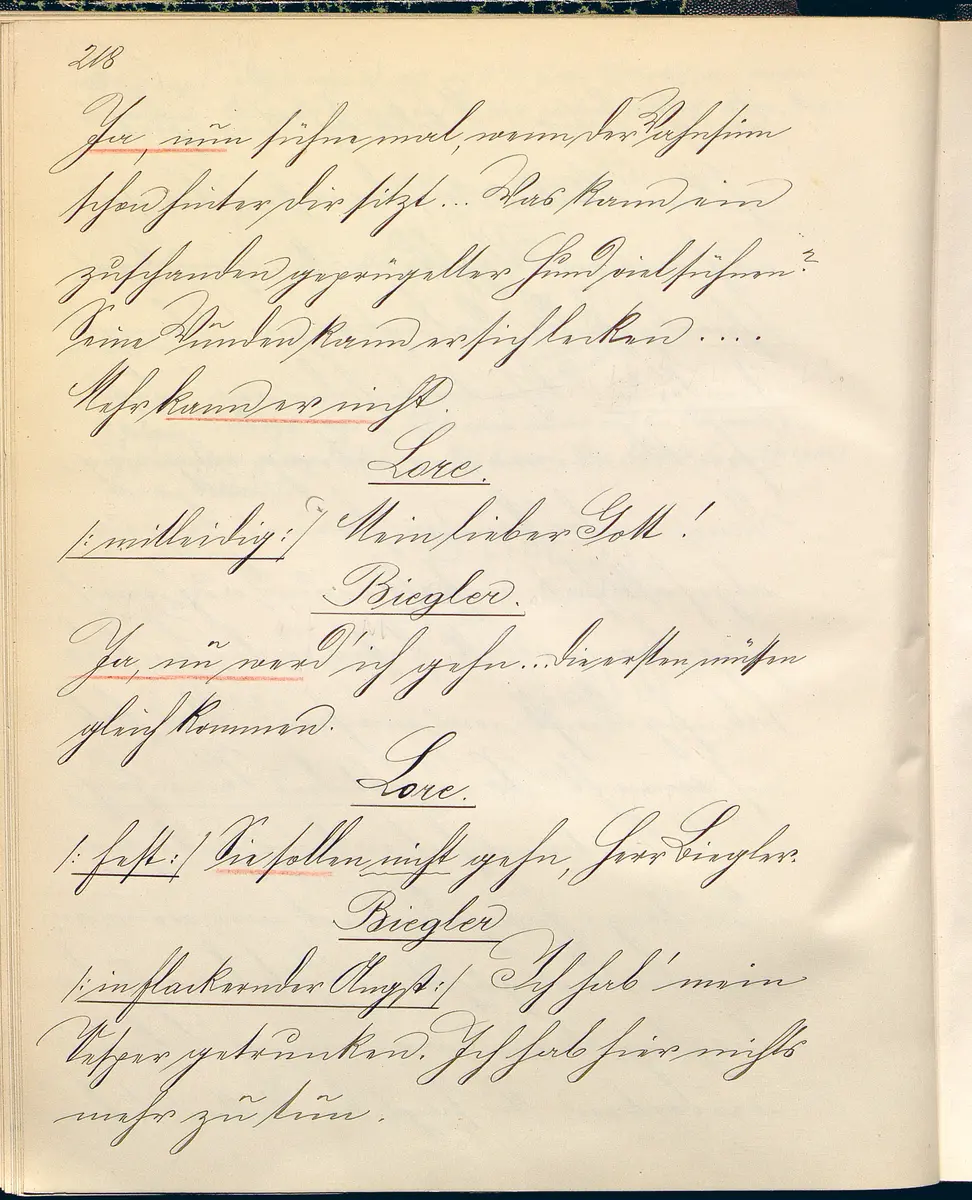 218
Ja, nun sühne mal, wenn der Wahnsinn
schon hinter dir sitzt... Was kann ein
zuschanden geprügelter Hund viel sühnen?
Seine Wunden kann er sich lecken ....
Mehr kann er nicht.
Lore.
/: mitleidig :/ Mein lieber Gott!
Biegler.
Ja, nu werd' ich gehn... die ersten müssen
gleich kommen.
Lore.
/: fest :/ Sie sollen nicht gehn, Herr Biegler.
Biegler
/: in flackernder Angst :/ Ich hab' mein
Vesper getrunken. Ich hab hier nichts
mehr zu tun.